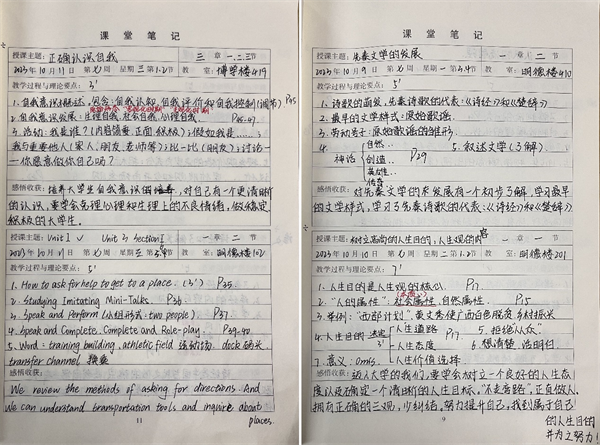 课堂笔记
授课主题: 正确认识自我 三章 一.二.三节
2023年10月11日 第七周 星期三 1.2节 教室: 博学楼419
教学过程与理论要点: 3'
1.自我意识概述,包含:自我认知,自我评价和自我控制(调节) P45
2.自我意识发展:生理自我,社会自我,心理自我. P45-49.
3.活动:我是谁?(内容简要,正面,积极);假如我是……;
我与重要他人(家人、朋友、老师等);比一比(朋友);讨论一
一你愿意做你自己吗?
感悟收获: 培养大学生自我意识,对自己有个更清晰
的认识,要学会处理心理和生理上的不良情绪,做个稳定
积极的大学生.
授课主题: Unit 1 Unit 3 Section I 一章 二节
2023年10月11日 第七周 星期三 3.4节 教室: 明德楼102
教学过程与理论要点: 5'
1. How to ask for help to get to a place. (3') P35.
2. Studying Imitating Mini-Talks. P36
3. Speak and Perform (小组形式: two people) P37.
4. Speak and Complete. Complete and Role-play. P39-40.
5. Word: training building, athletic field 运动场 dock 码头
transfer channel 换乘
感悟收获:
We review the methods of asking for directions. And
We can understand transportation tools and inquire about
places.
课堂笔记
授课主题: 先秦文学的发展 一章 二节
2023年10月9日 第七周 星期一 3.4节 教室: 明德楼410
教学过程与理论要点: 1'
1.诗歌的萌发,先秦诗歌的代表:《诗经》和《楚辞》
2.最早的文学样式:原始歌谣.
3.劳动号子:原始歌谣的雏形
4. 自然.. 5.叙述文学(3解).
神话 创造.. P29
英雄性..
传奇
感悟收获: 对先秦文学的发展有个初步了解,学习最早
的文学样式,学习了先秦诗歌的代表:《诗经》和《楚辞》
授课主题: 树立高尚的人生目的,人生观的内容 一章 二节
2023年10月10日 第七周 星期二 1.2节 教室: 明德楼201
教学过程与理论要点: 7'
1.人生目的是人生观的核心. P17.
2."人的属性":社会属性,自然属性. P15
(本质)
3.举例:"西部计划" 黄文秀使广西白色脱贫 乡村振兴
4.人生目的 决定 人生道路 P17 5.拒绝从众"
人生态度 6.想清楚,活明白.
7.意义: 人生价值选择
感悟收获: 迈入大学的我们,要学会树立一个良好的人生态
度以及确定一个清晰的人生目标,"不走弯路",正直做人.
拥有正确的三观,少纠结,努力提升自己,找到属于自己
的人生目的
并为之努力!
9